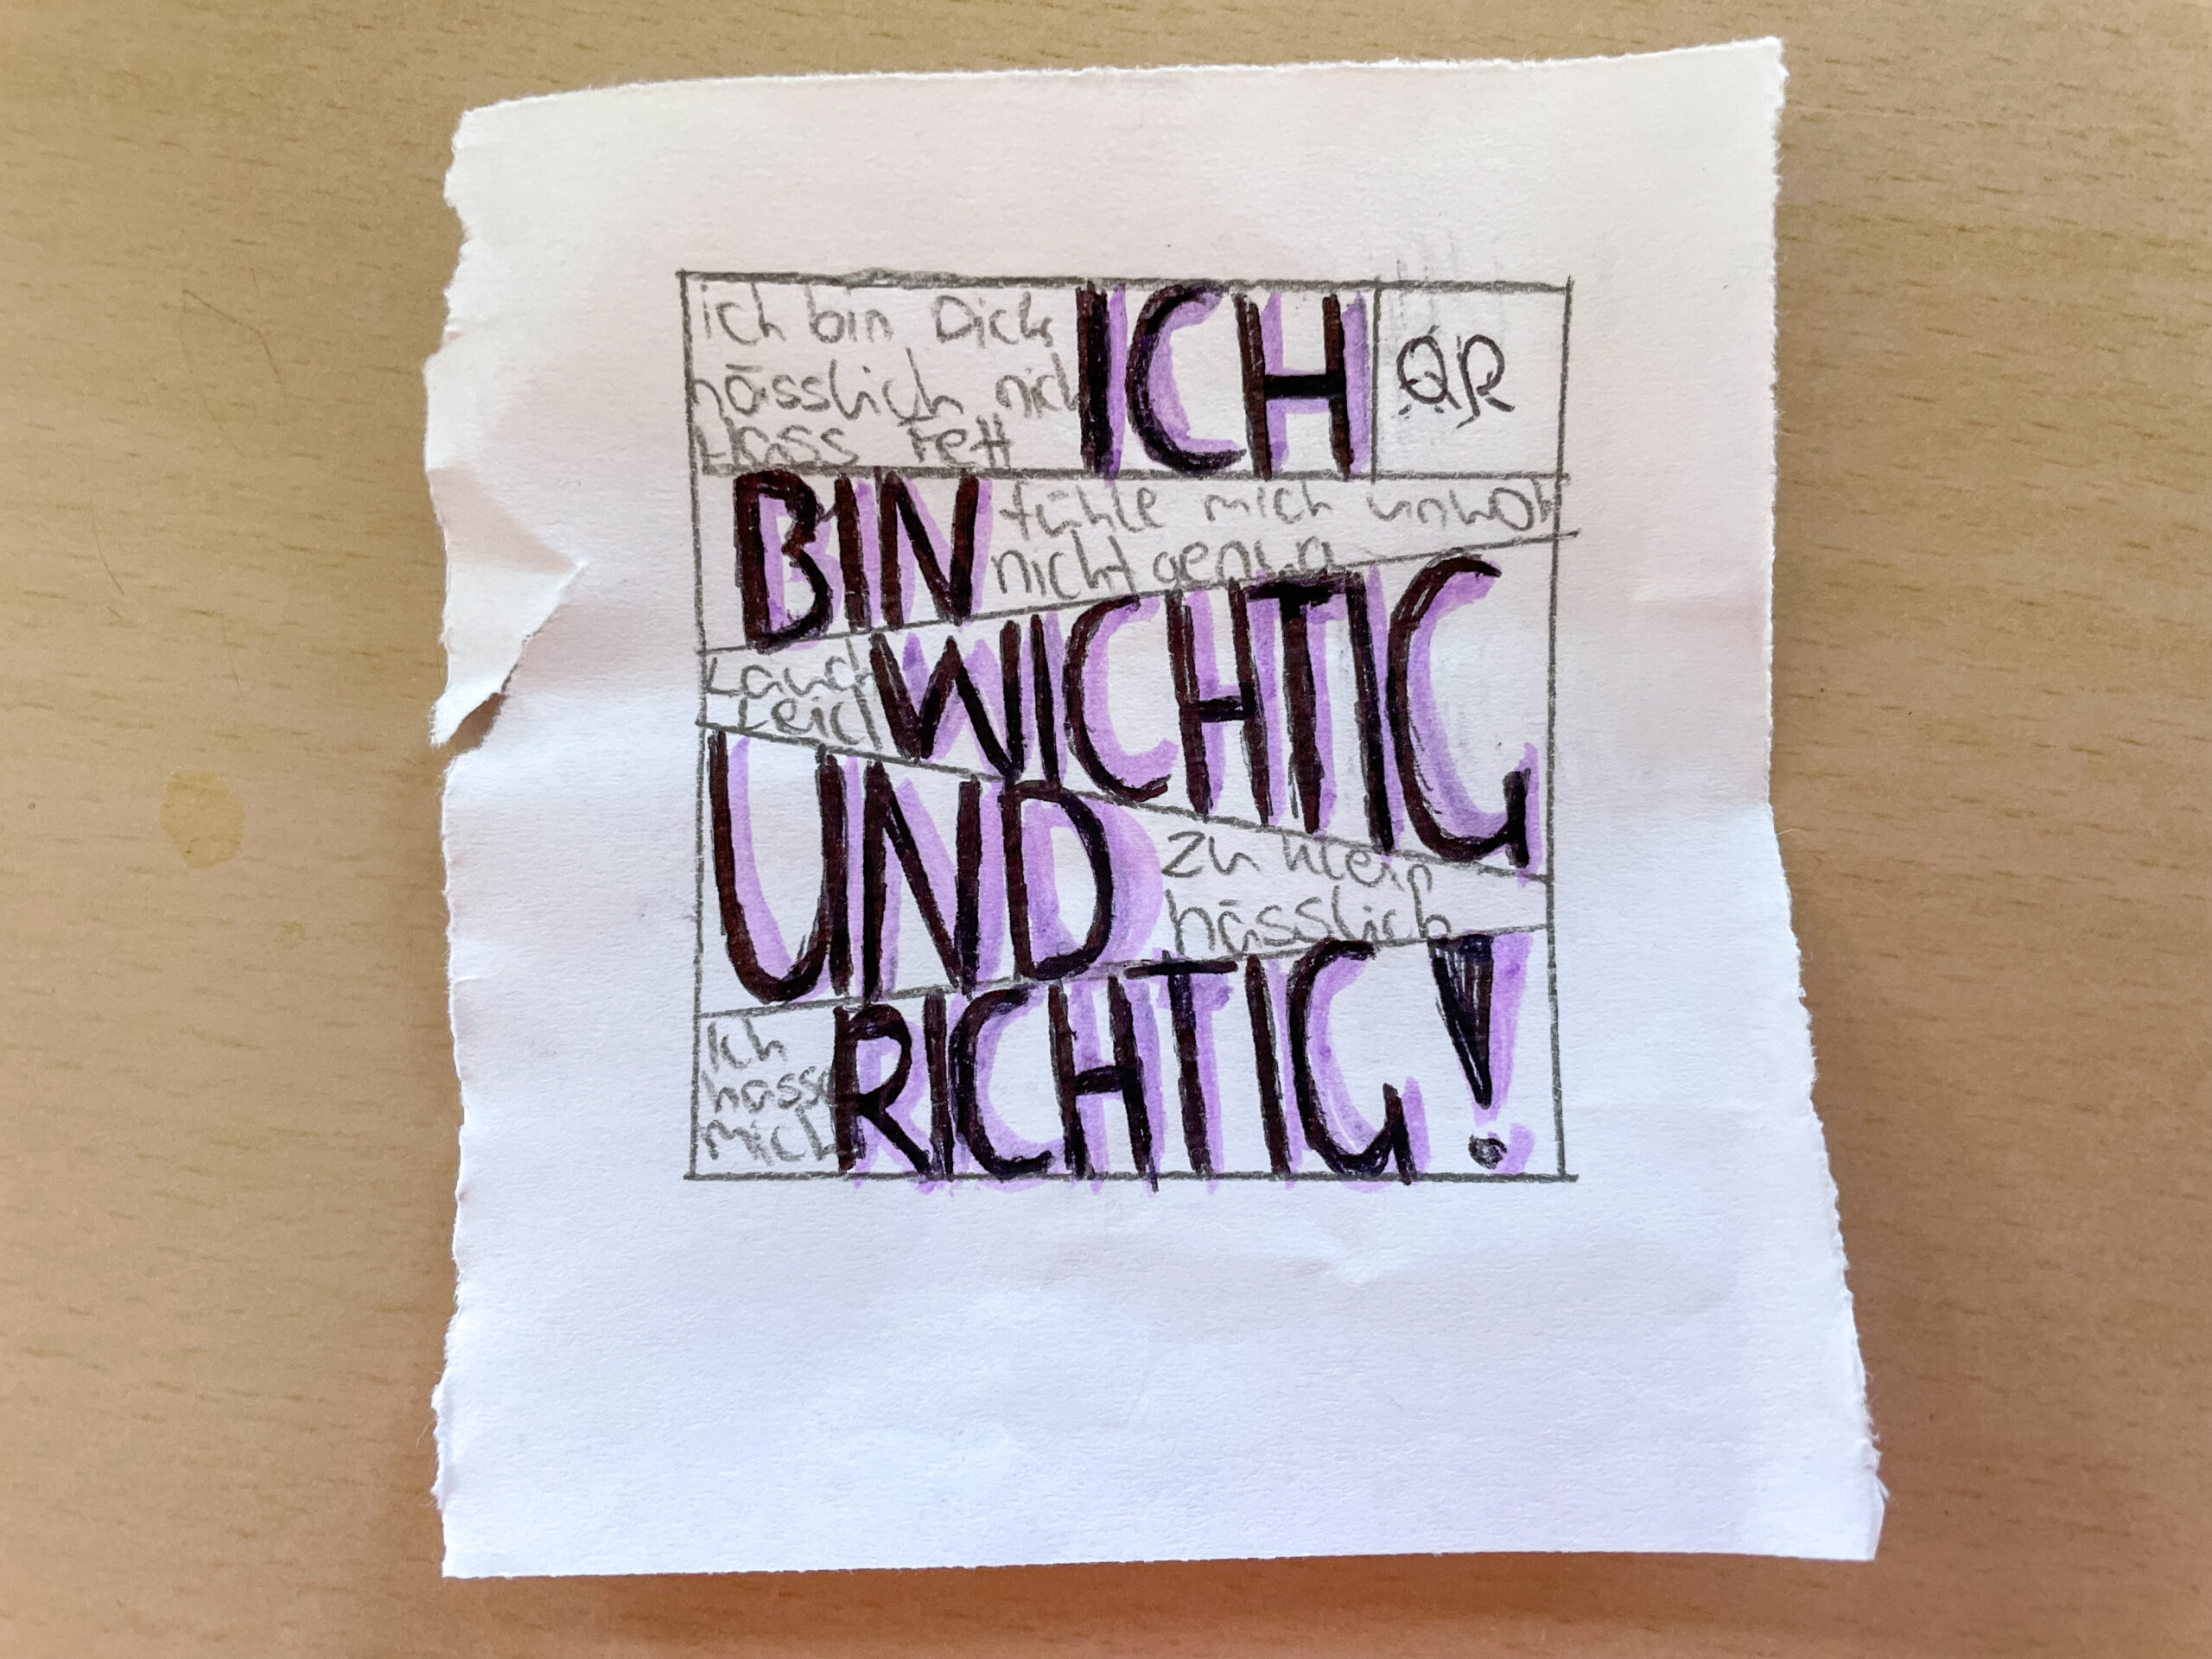 ich bin Dick ICH QR
hässlich nich
Hass Fett
BIN fühle mich unwohl
nicht genug
Lauch WICHTIG
Leich
UND zu klein
hässlich
Ich RICHTIG!
hasse
mich